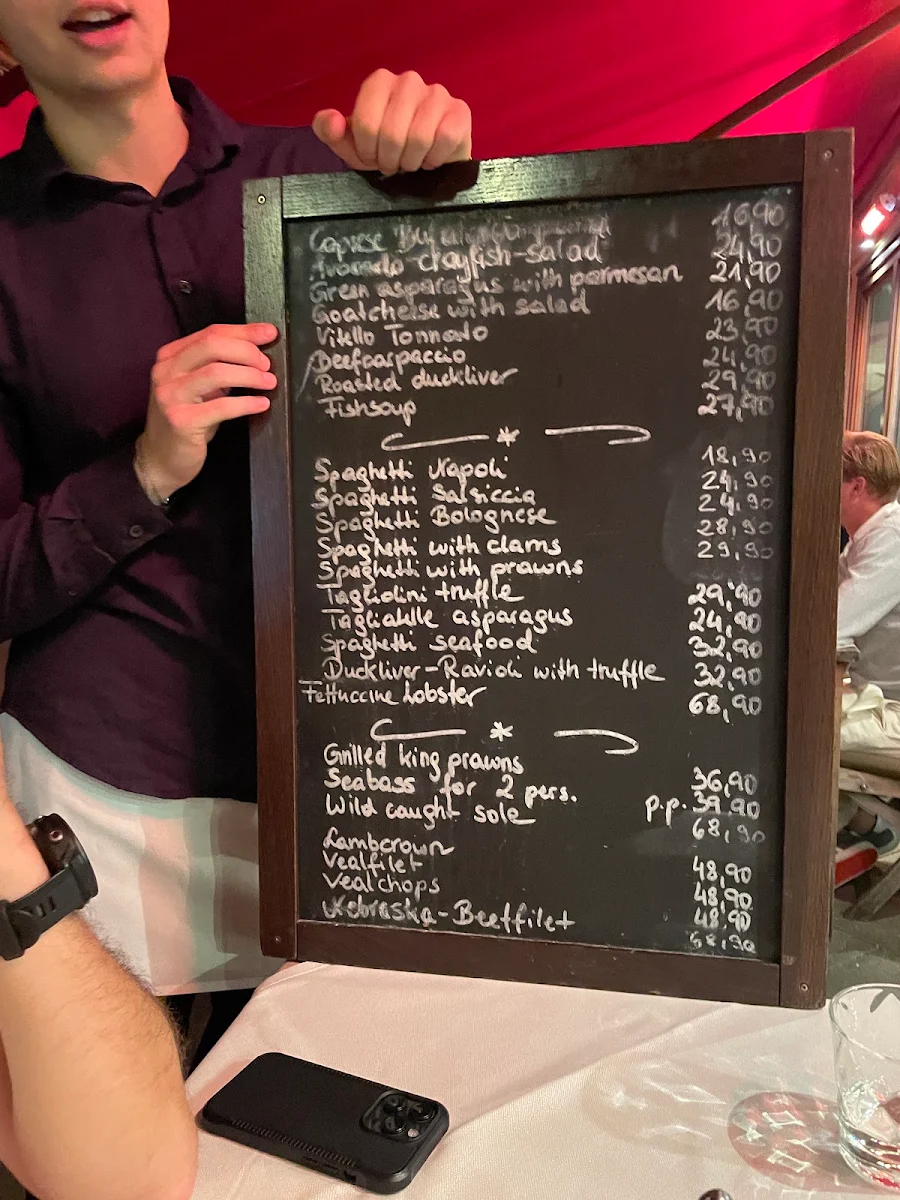 Caprese 16,90
Avocado crayfish-salad 24,90
Green asparagus with parmesan 21,90
Goatcheese with salad 16,90
Vitello Tonnato 23,90
Beefcarpaccio 24,90
Roasted duckliver 29,90
Fishsoup 27,90
Spaghetti Napoli 18,90
Spaghetti Salsiccia 24,90
Spaghetti Bolognese 24,90
Spaghetti with clams 28,90
Spaghetti with prawns 29,90
Tagliolini truffle 29,90
Tagliatelle asparagus 24,90
Spaghetti seafood 32,90
Duckliver-Ravioli with truffle 32,90
Fettuccine Lobster 68,90
Grilled king prawns 36,90
Seabass for 2 pers. p.p. 39,90
Wild caught sole 68,90
Lambcrown 48,90
Vealfilet 48,90
Vealchops 48,90
Nebraska-Beeffilet 68,90